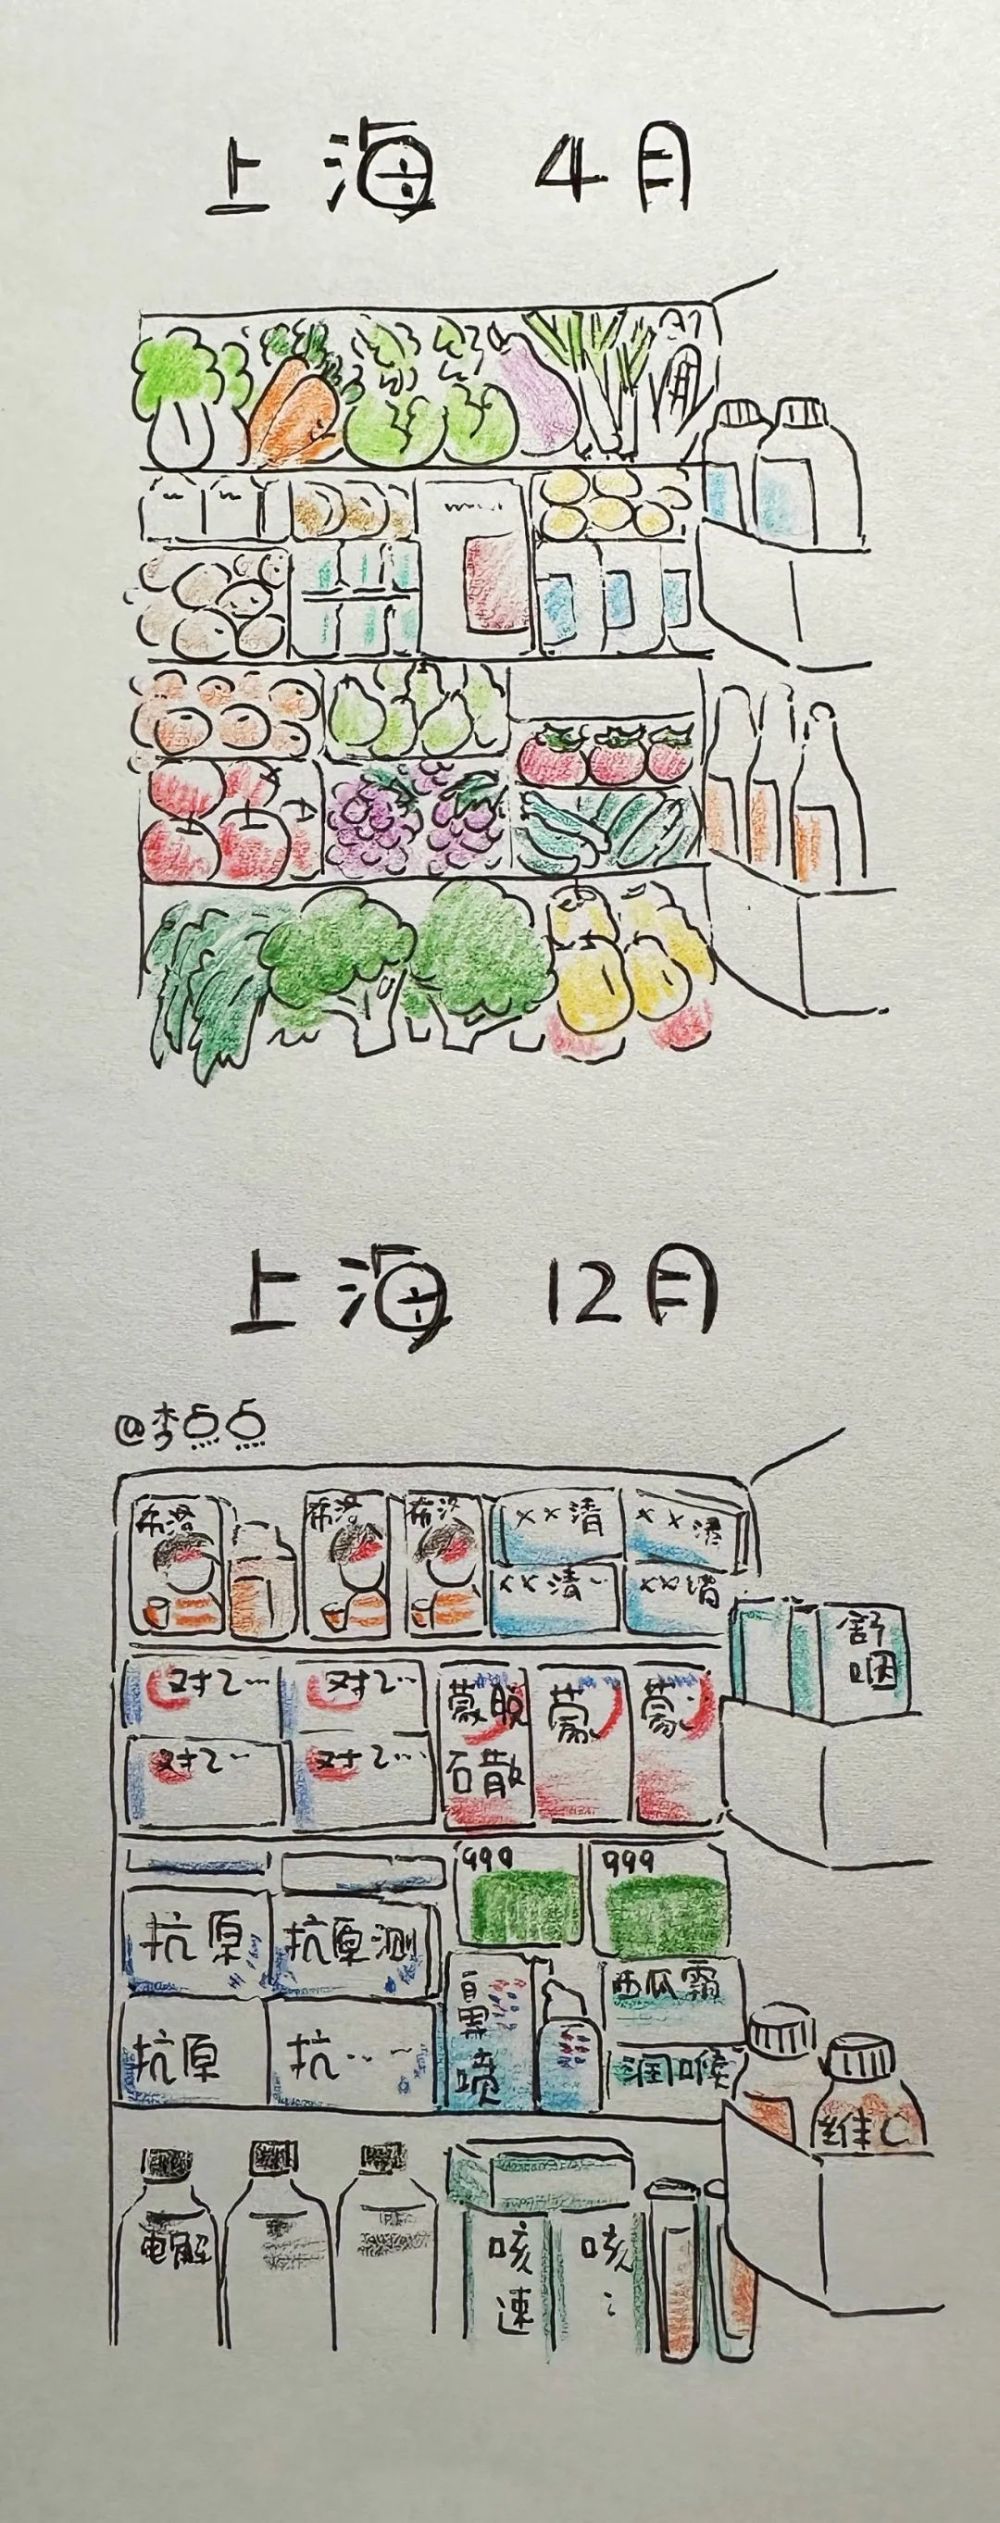 上海 4月
上海 12月
@李点点
希洛
希洛
希洛
××清
××清
××清…
××清
舒
咽
对乙…
对乙…
蒙脱
石散
蒙
蒙
对乙…
对乙…
999
999
抗原
抗原测
鼻
喷
西瓜霜
抗原
抗……
润喉
维C
电解
咳
速
咳